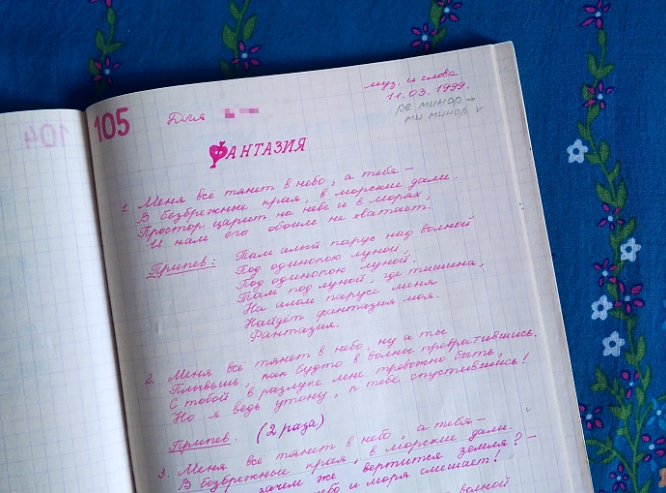 104
105
Для
муз. и слова
11.03.1999.
ре минор →
ми минор v
ФАНТАЗИЯ
1. Меня всё тянет в небо, а тебя –
В безбрежные края, в морские дали.
Простор царит на небе и в морях,
И нам его обоим не хватает!
Припев: Там алый парус над волной
Под одинокою луной,
Под одинокою луной.
Там под луной, где тишина,
На алом парусе меня
Найдёт фантазия моя.
Фантазия.
2. Меня всё тянет в небо, ну а ты
Плывёшь, как будто в волны превратившись.
С тобой в разлуке мне тревожно быть,
Но я ведь утону, к тебе опустившись!
Припев. (2 раза)
3. Меня всё тянет в небо, а тебя –
В безбрежные края, в морские дали.
зачем же вертится земля? –
небо и моря смешает!
волной